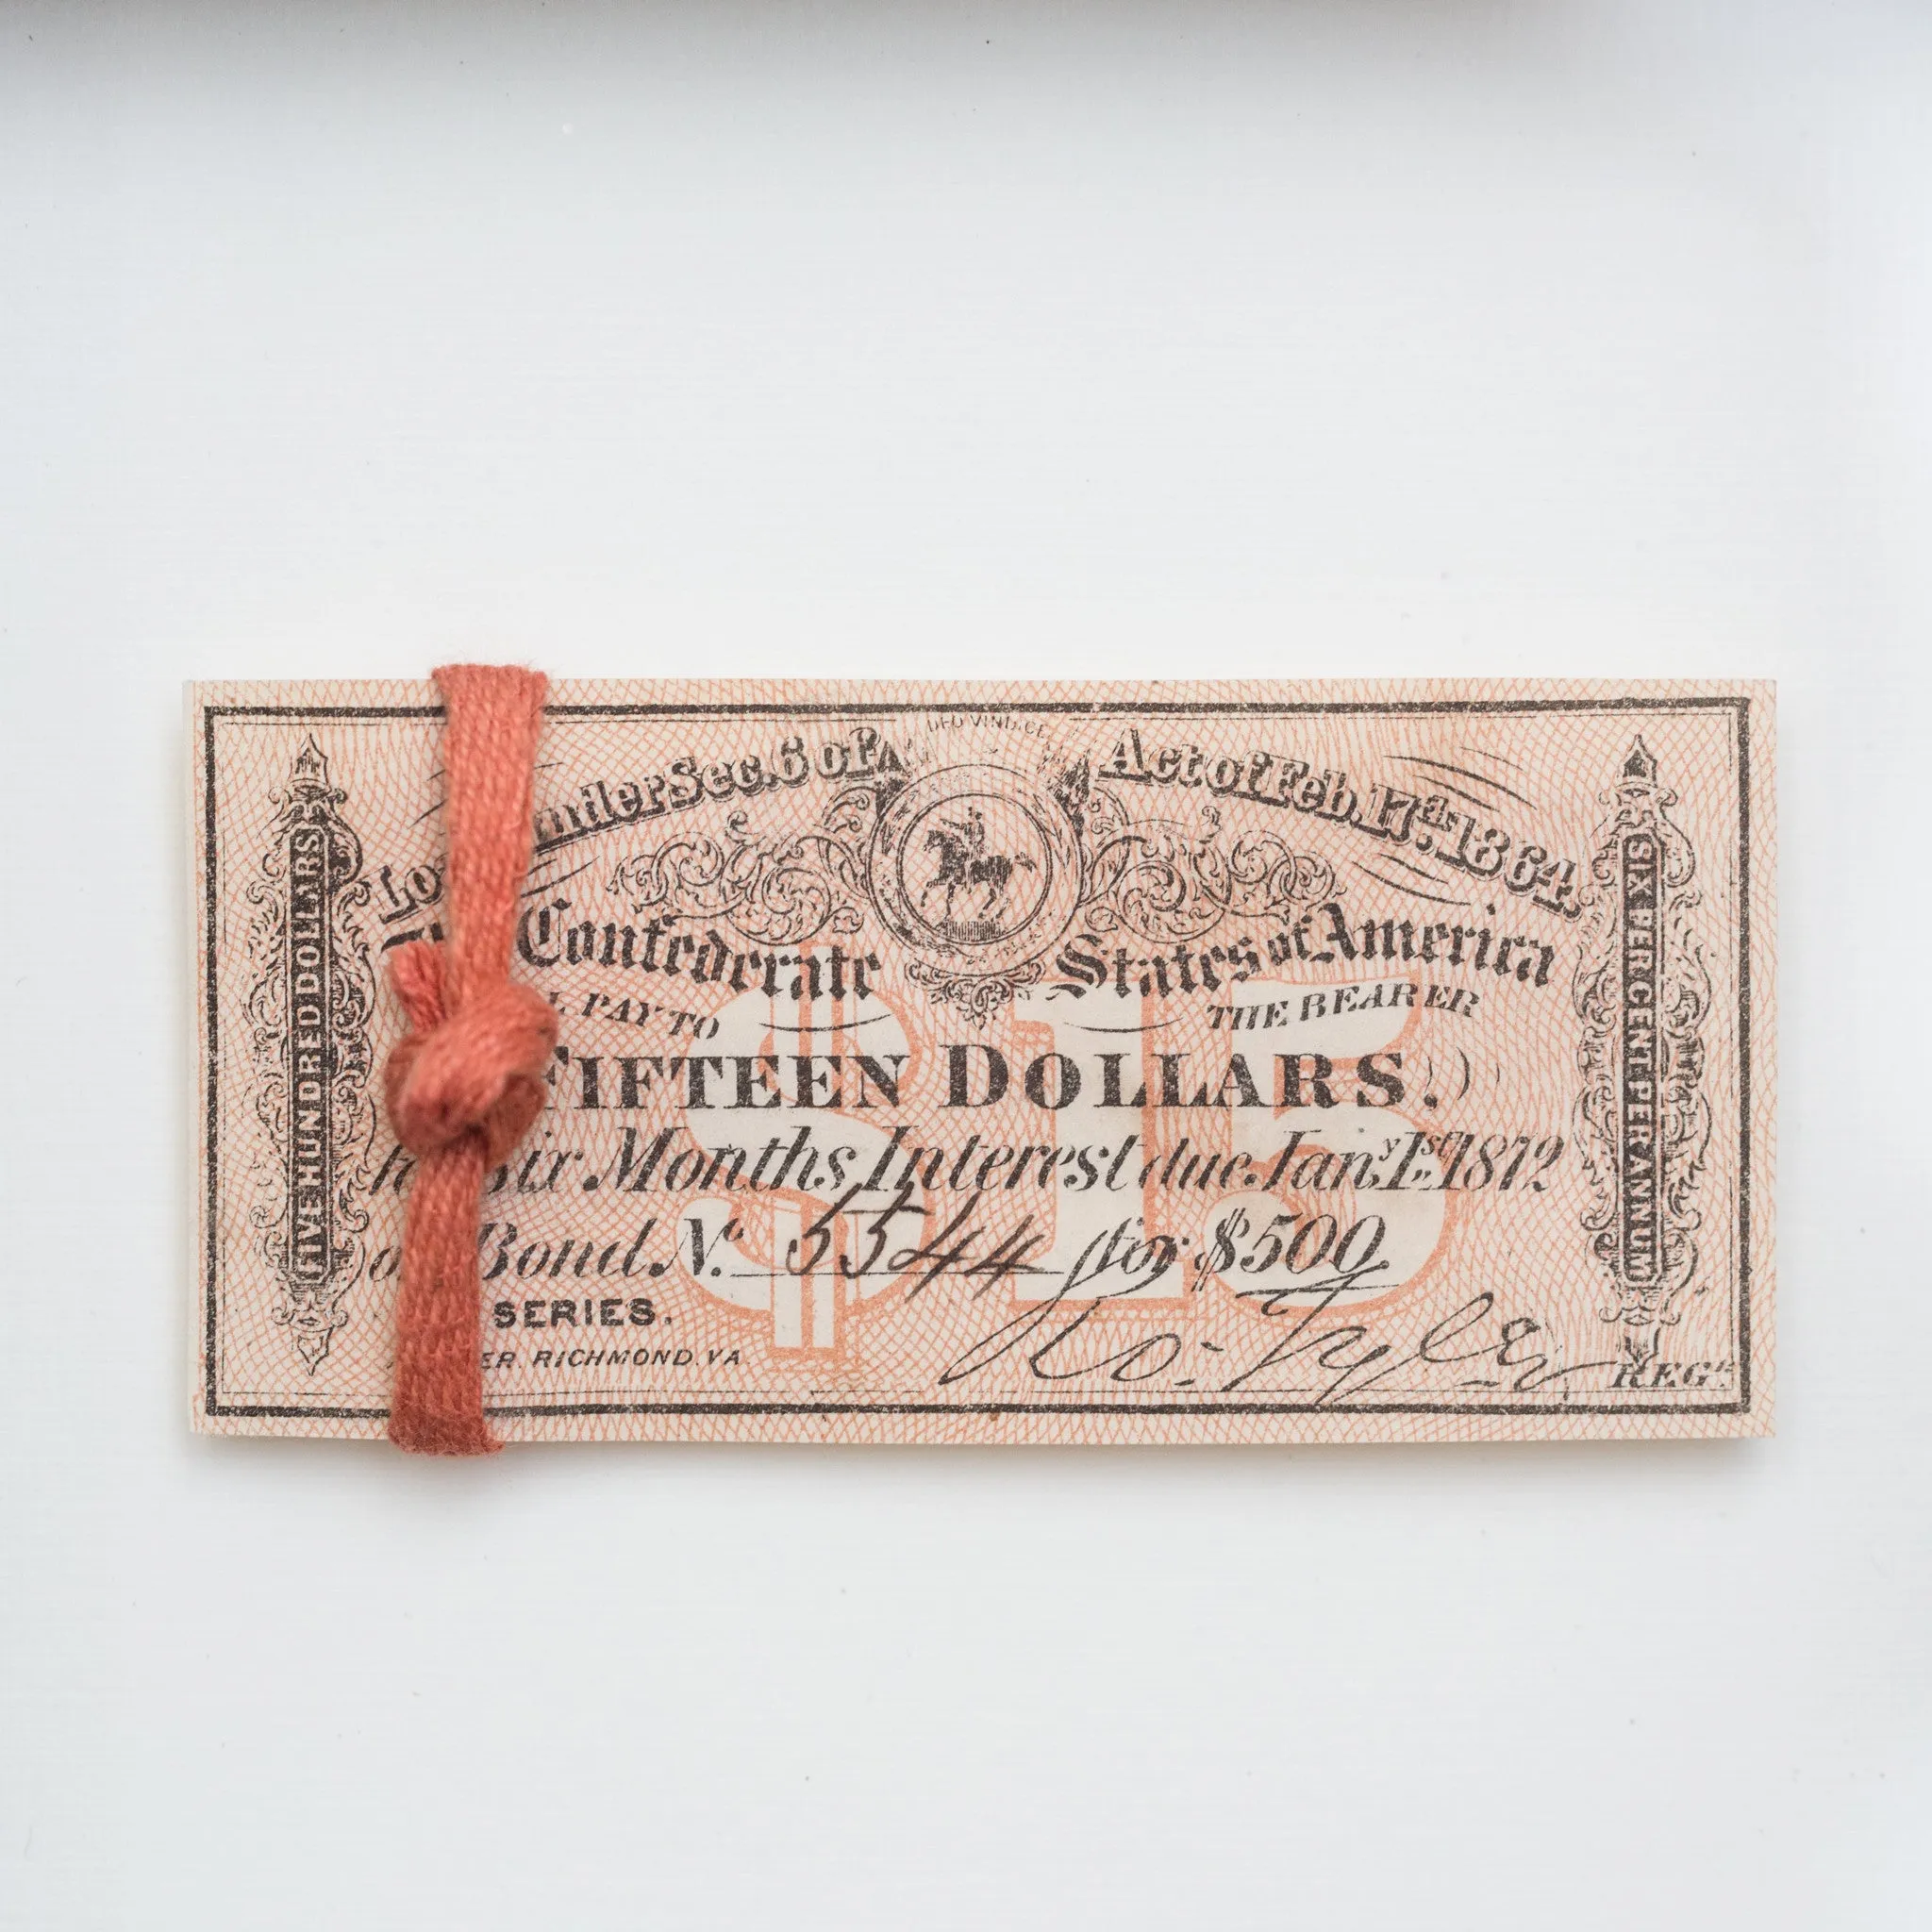 DEO VINDICE
Sec. 6 of Act of Feb. 17th 1864.
Confederate States of America
PAY TO THE BEARER
FIFTEEN DOLLARS.
Six Months Interest due Jany. 1st 1872
Bond No. 5544 for $500
SERIES.
RICHMOND, VA.
Ro. Tyler REGR.
FIVE HUNDRED DOLLARS
SIX PER CENT PER ANNUM
$15